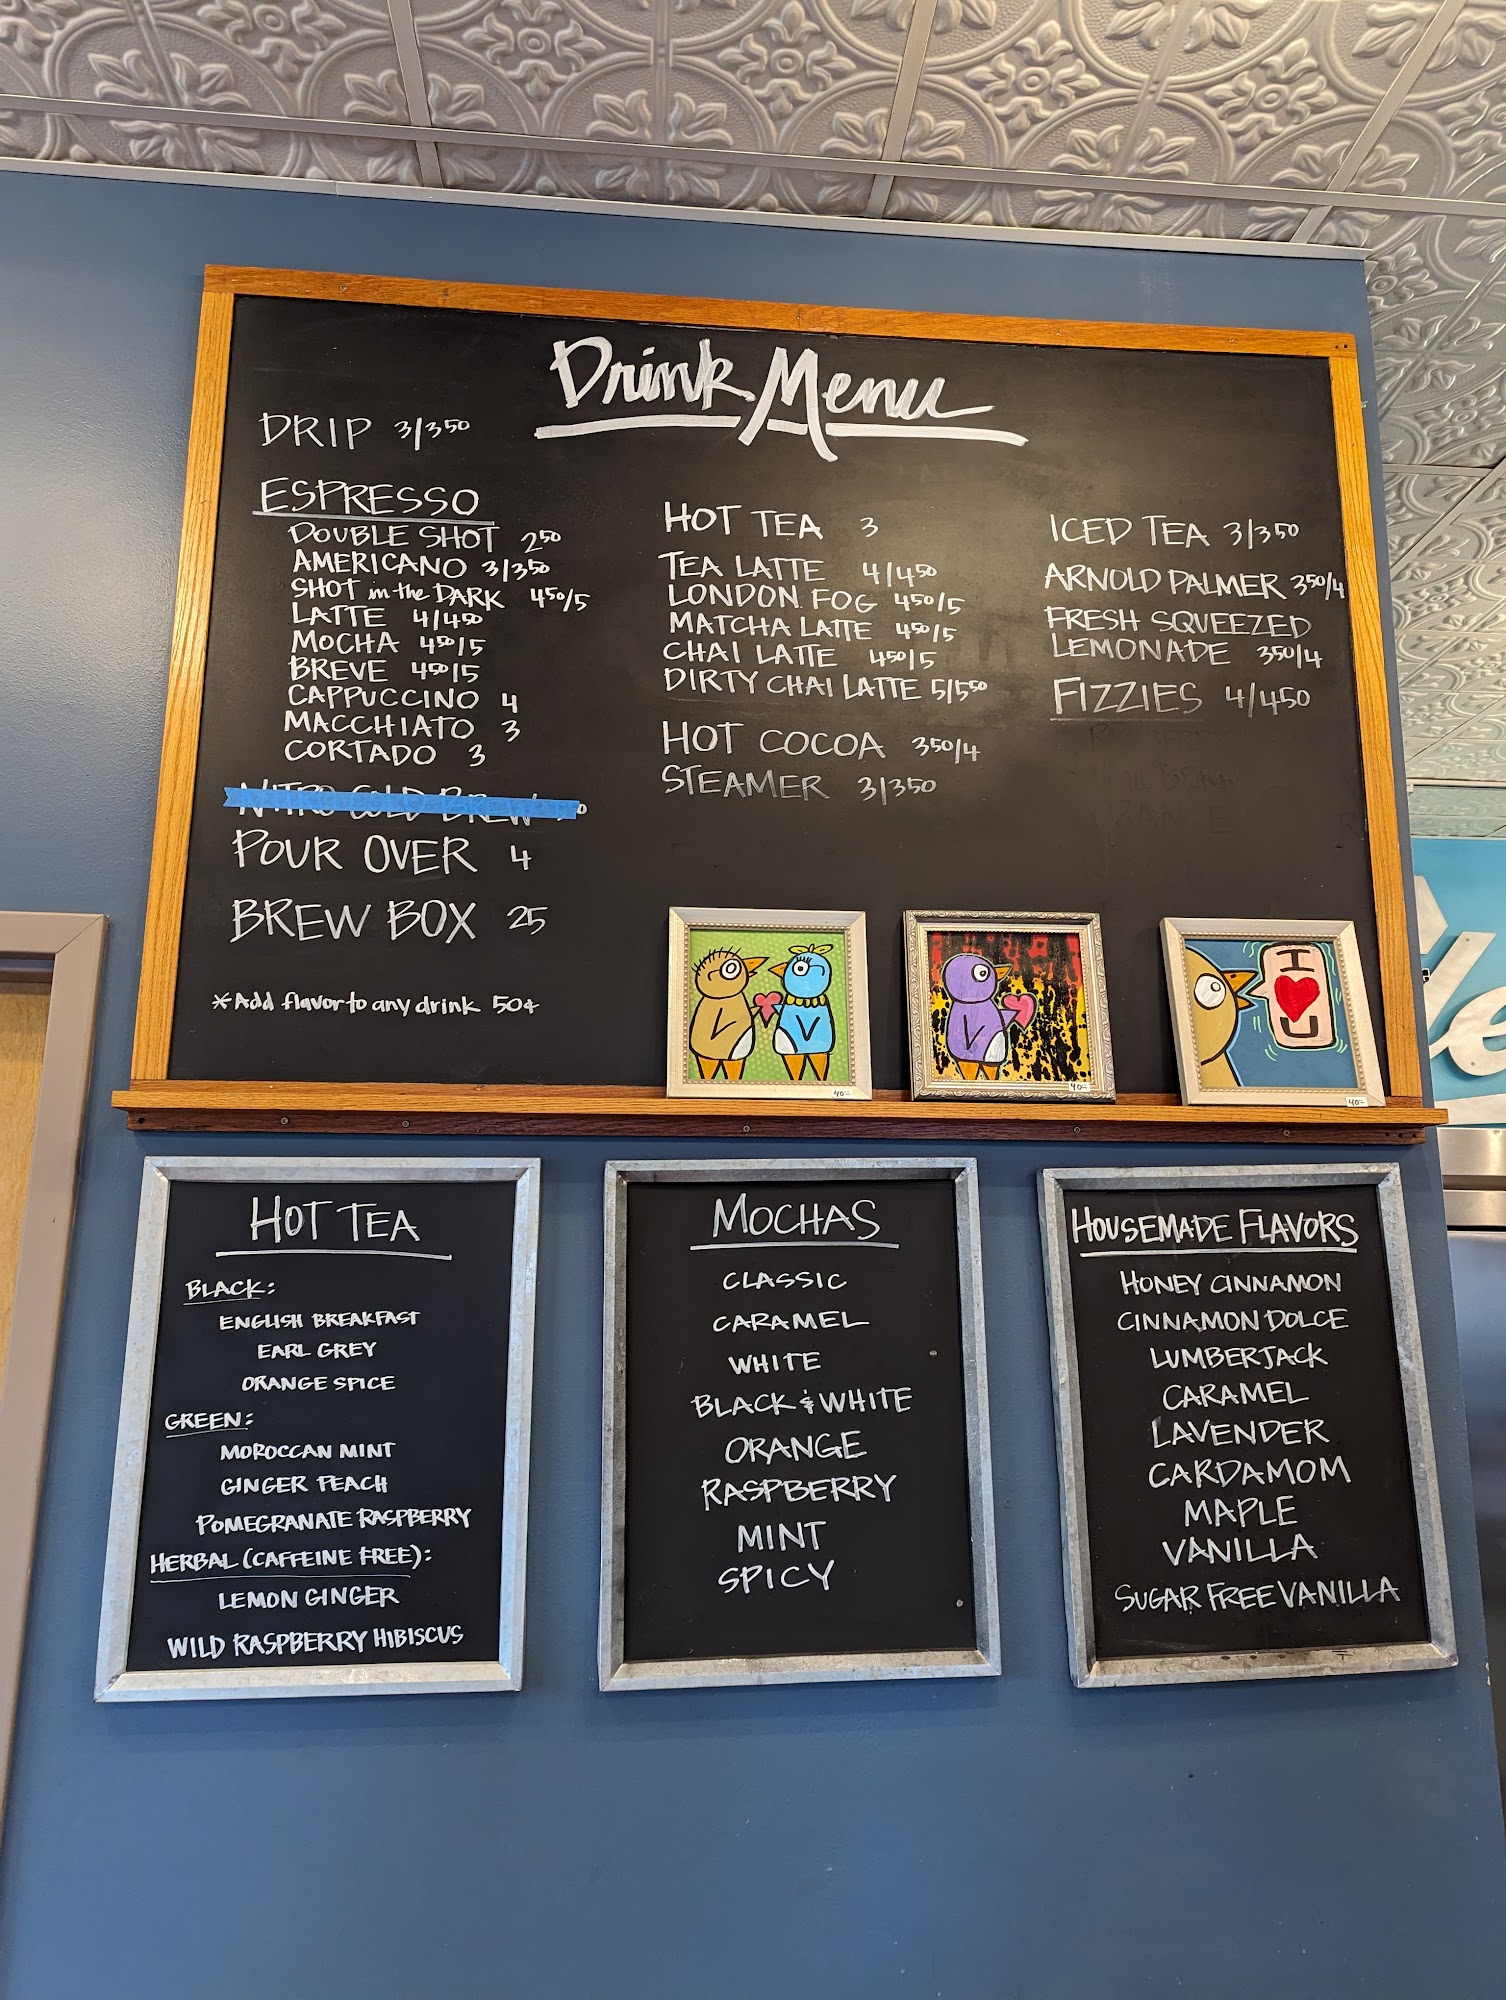 Drink Menu
DRIP 3/3⁵⁰
ESPRESSO
DOUBLE SHOT 2⁵⁰
AMERICANO 3/3⁵⁰
SHOT in the DARK 4⁵⁰/5
LATTE 4/4⁵⁰
MOCHA 4⁵⁰/5
BREVE 4⁵⁰/5
CAPPUCCINO 4
MACCHIATO 3
CORTADO 3
NITRO COLD BREW
POUR OVER 4
BREW BOX 25
*Add flavor to any drink 50¢
HOT TEA 3
TEA LATTE 4/4⁵⁰
LONDON FOG 4⁵⁰/5
MATCHA LATTE 4⁵⁰/5
CHAI LATTE 4⁵⁰/5
DIRTY CHAI LATTE 5/5⁵⁰
HOT COCOA 3⁵⁰/4
STEAMER 3/3⁵⁰
ICED TEA 3/3⁵⁰
ARNOLD PALMER 3⁵⁰/4
FRESH SQUEEZED
LEMONADE 3⁵⁰/4
FIZZIES 4/4⁵⁰
I
U
40
40
40
HOT TEA
BLACK:
ENGLISH BREAKFAST
EARL GREY
ORANGE SPICE
GREEN:
MOROCCAN MINT
GINGER PEACH
POMEGRANATE RASPBERRY
HERBAL (CAFFEINE FREE):
LEMON GINGER
WILD RASPBERRY HIBISCUS
MOCHAS
CLASSIC
CARAMEL
WHITE
BLACK & WHITE
ORANGE
RASPBERRY
MINT
SPICY
HOUSEMADE FLAVORS
HONEY CINNAMON
CINNAMON DOLCE
LUMBERJACK
CARAMEL
LAVENDER
CARDAMOM
MAPLE
VANILLA
SUGAR FREE VANILLA